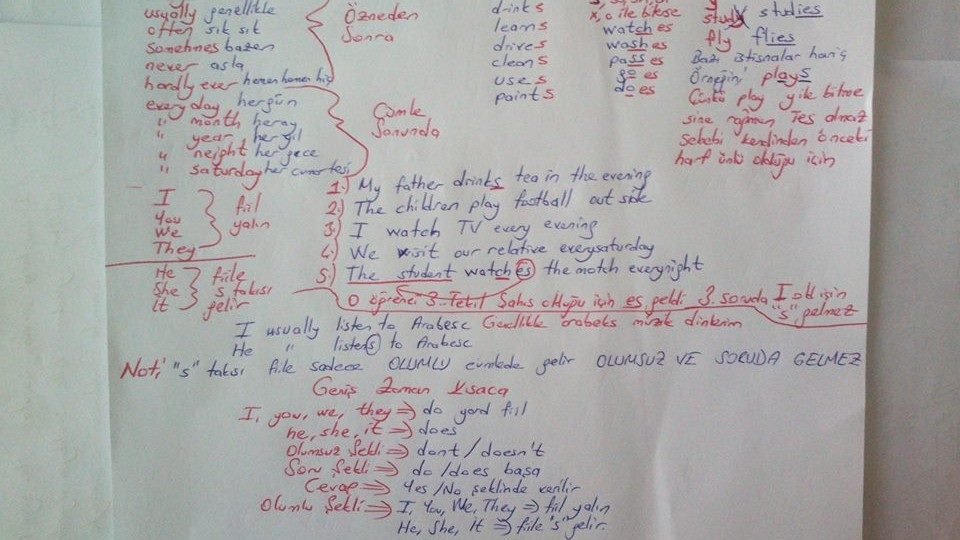 usually genellikle
often sık sık
Sometimes bazen
never asla
hardly ever hemen hemen hiç
Özneden
Sonra
everyday hergün
" month heray
" year her yıl
" neight her gece
" saturday her cumartesi
Cümle
Sonunda
drinks
learns
drives
cleans
uses
paints
x, o ile bitse
watches
washes
passes
goes
does
study studies
fly flies
Bazı istisnalar hariç
Örneğin; plays
Çünkü play y ile bitme
sine rağmen ies almaz
Sebebi kendinden önceki
harf ünlü olduğu için
I
You
We
They
fiil
yalın
He
She
It
fiile
s takısı
gelir
1.) My father drinks tea in the evening
2.) The children play football out side
3.) I watch TV every evening
4.) We visit our relative everysaturday
5.) The student watches the match everynight
O öğrenci 3. Tekil Şahıs olduğu için es geldi 3. soruda I old. için
"s" gelmez
I usually listen to Arabesc Genellikle arabeks müzik dinlerim
He " listens to Arabesc
Not; "s" takısı fiile sadece OLUMLU cümlede gelir OLUMSUZ VE SORUDA GELMEZ
Geniş Zaman Kısaca
I, you, we, they ⇒ do yard fiil
he, she, it ⇒ does
Olumsuz Şekli ⇒ dont / doesn't
Soru Şekli ⇒ do / does başa
Cevap ⇒ Yes / No şeklinde verilir
Olumlu Şekli ⇒ I, You, We, They ⇒ fiil yalın
He, She, It ⇒ fiile "s" gelir.